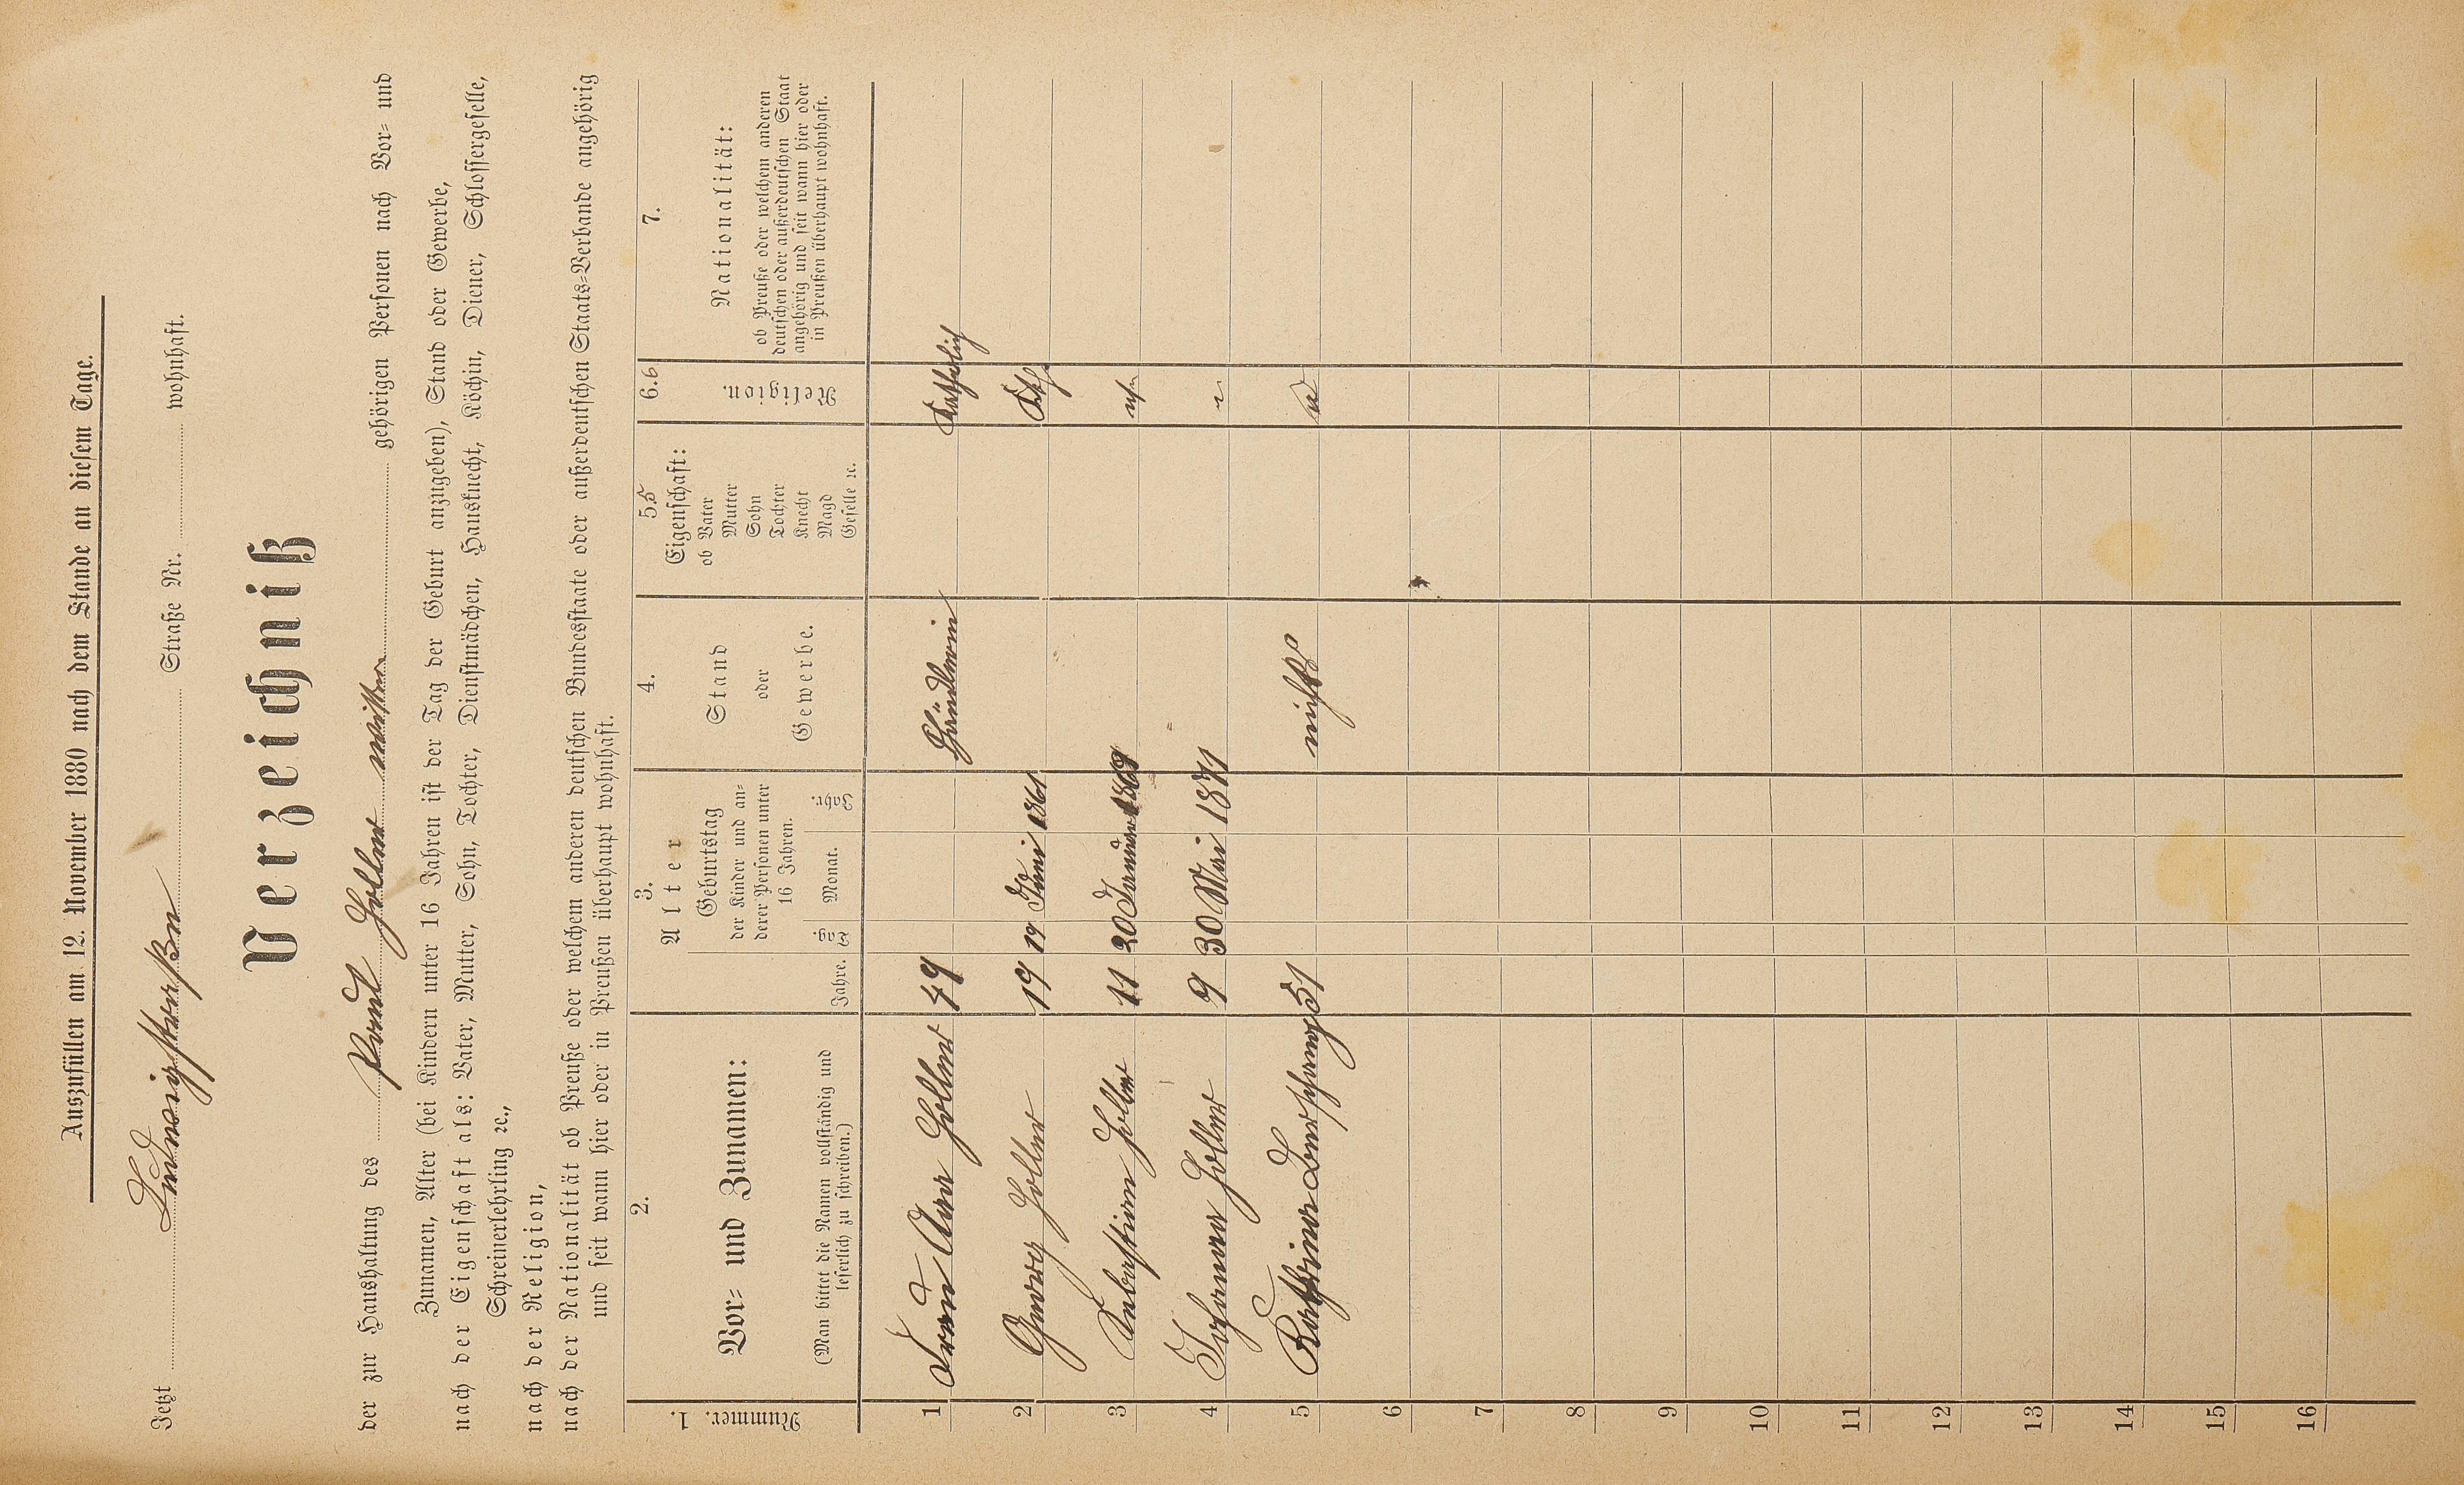 Auszufüllen am 12. November 1880 nach dem Stande an diesem Tage.
Jetzt Ludwigstraße Straße Nr. wohnhaft.
Verzeichniß
der zur Haushaltung des Paul Holler gehörigen Personen nach Vor- und
Zunamen, Alter (bei Kindern unter 16 Jahren ist der Tag der Geburt anzugeben), Stand oder Gewerbe,
nach der Eigenschaft als: Vater, Mutter, Sohn, Tochter, Dienstmädchen, Hausknecht, Köchin, Diener, Schlossergeselle,
Schreinerlehrling ꝛc.,
nach der Religion,
nach der Nationalität ob Preuße oder welchem anderen deutschen Bundesstaate oder außerdeutschen Staats-Verbande angehörig
und seit wann hier oder in Preußen überhaupt wohnhaft.
Nummer. 1.
2.
Vor- und Zunamen:
(Man bittet die Namen vollständig und
leserlich zu schreiben.)
3.
Alter
Jahre.
Geburtstag
der Kinder und an-
derer Personen unter
16 Jahren.
Tag. Monat. Jahr.
4.
Stand
oder
Gewerbe.
5. 5
Eigenschaft:
ob Vater
Mutter
Sohn
Tochter
Knecht
Magd
Geselle ꝛc.
6. 6
Religion.
7.
Nationalität:
ob Preuße oder welchem anderen
deutschen oder außerdeutschen Staat
angehörig und seit wann hier oder
in Preußen überhaupt wohnhaft.
1 Frau Holler 49 Händlerin Katholich
2 Georg Holler 19 19 Juni 1861 Kath
3 Sebastian Holler 11 20 Januar 1869
4 Johanna Holler 9 30 Mai 1871
5 Kathrina 51 nichts
6
7
8
9
10
11
12
13
14
15
16